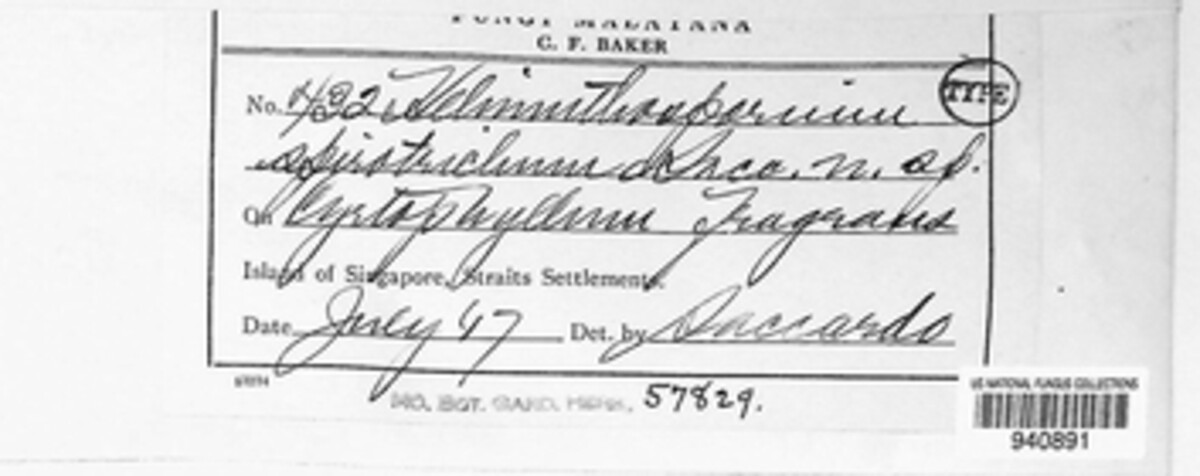 FUNGI MALAYANA
C. F. BAKER
TYPE
No. 432 Helminthosporium
spirotrichum Sacc. n. sp.
On Cyrtophyllum Fragrans
Island of Singapore, Straits Settlements.
Date July '17 Det. by Saccardo
MO. BOT. GARD. HERB. 57829.
US NATIONAL FUNGUS COLLECTIONS
940891